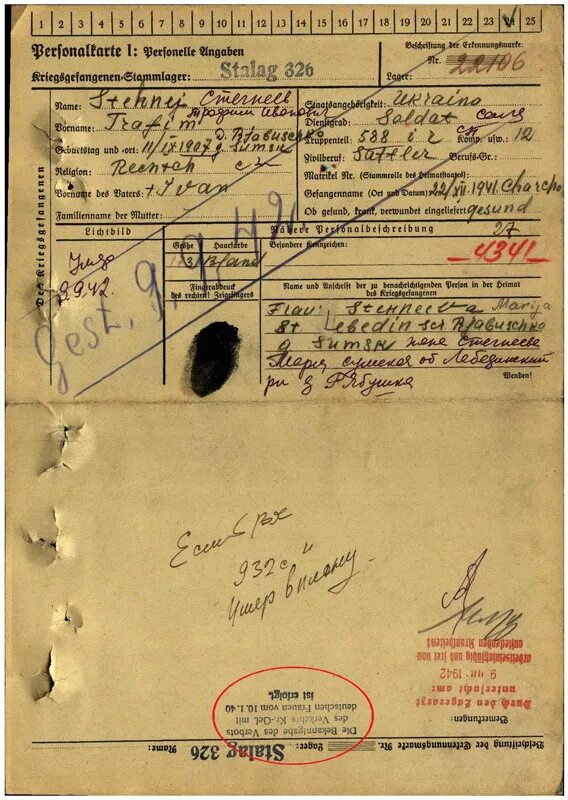 1 2 3 4 5 6 7 8 9 10 11 12 13 14 15 16 17 18 19 20 21 22 23 24 25
Personalkarte I: Personelle Angaben
Kriegsgefangenen-Stammlager: Stalag 326
Beschriftung der Erkennungsmarke
Nr. 22106
Lager:
Des Kriegsgefangenen
Name: Stehnej Стегнеев
Vorname: Trafim Трофим Иванович
Geburtstag und -ort: 11/IX 1907 D. Rjabuschko g. Sumsk
Religion:
Vorname des Vaters: + Ivan
Familienname der Mutter:
Staatsangehörigkeit: Ukraino
Dienstgrad: Soldat
Truppenteil: 588 i r Komp. usw.: 12
Zivilberuf: Sattler Berufs-Gr.:
Matrikel Nr. (Stammrolle des Heimatstaates):
Gefangennahme (Ort und Datum): 22/XII. 1941. Charcho
Ob gesund, krank, verwundet eingeliefert: gesund
Lichtbild
9.9.42
Nähere Personalbeschreibung
Größe
Haarfarbe
Besondere Kennzeichen:
173
Bland
27
-4341-
Gest. 9.9.42
Fingerabdruck
des rechten! Zeigefingers
Name und Anschrift der zu benachrichtigenden Person in der Heimat
des Kriegsgefangenen
Frau: Stehneeva Marija
St Lebedinscr Rjabuschko
g Sumsk жена Стегнеева
Мария сумская об Лебединский
рн д Рябушка
Wenden!
932 с
Умер в плену.
arbeitseinsatzfähig und frei von
ansteckenden Krankheiten!
9. III. 1942
untersucht am:
Durch den Lagerarzt
Bemerkungen:
Die Bekanntgabe des Verbots
des Verkehrs Kr.-Gef. mit
deutschen Frauen vom 10.1.40
ist erfolgt.
Beschriftung der Erkennungsmarke Nr.
Lager: Stalag 326
Name: